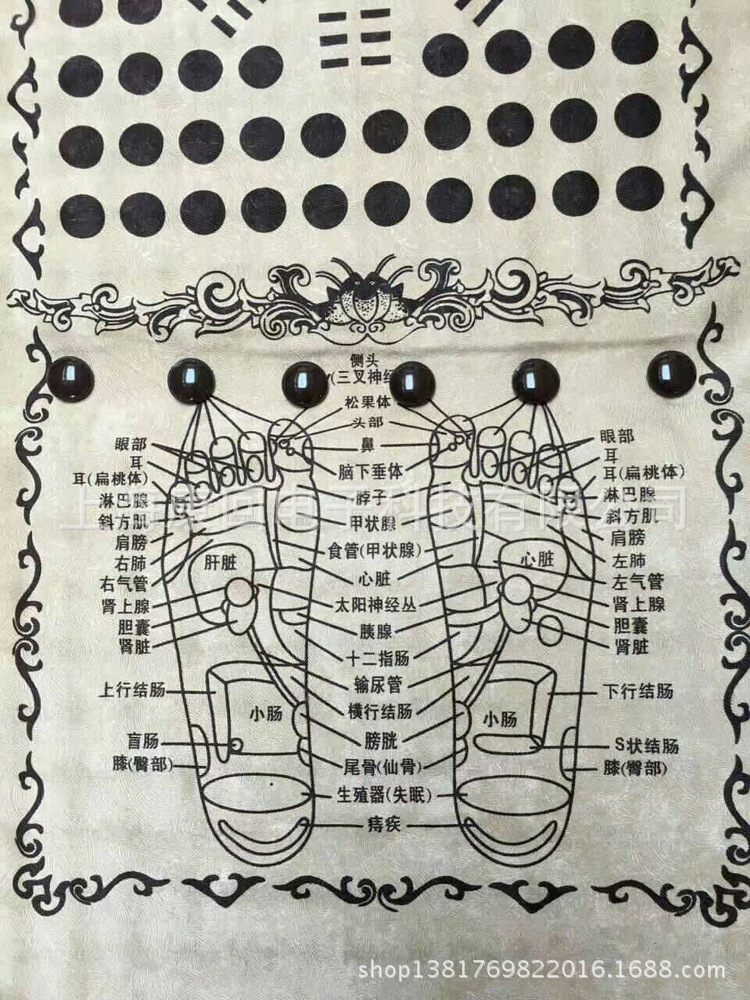 侧头
(三叉神经
松果体
头部
鼻
脑下垂体
脖子
甲状腺
食管(甲状腺)
心脏
太阳神经丛
胰腺
十二指肠
输尿管
横行结肠
膀胱
尾骨(仙骨)
生殖器(失眠)
痔疾
眼部
耳
耳(扁桃体)
淋巴腺
斜方肌
肩膀
右肺
右气管
肾上腺
胆囊
肾脏
上行结肠
盲肠
膝(臀部)
肝脏
小肠
心脏
小肠
眼部
耳
耳(扁桃体)
淋巴腺
斜方肌
肩膀
左肺
左气管
肾上腺
胆囊
肾脏
下行结肠
S状结肠
膝(臀部)
shop1381769822016.1688.com